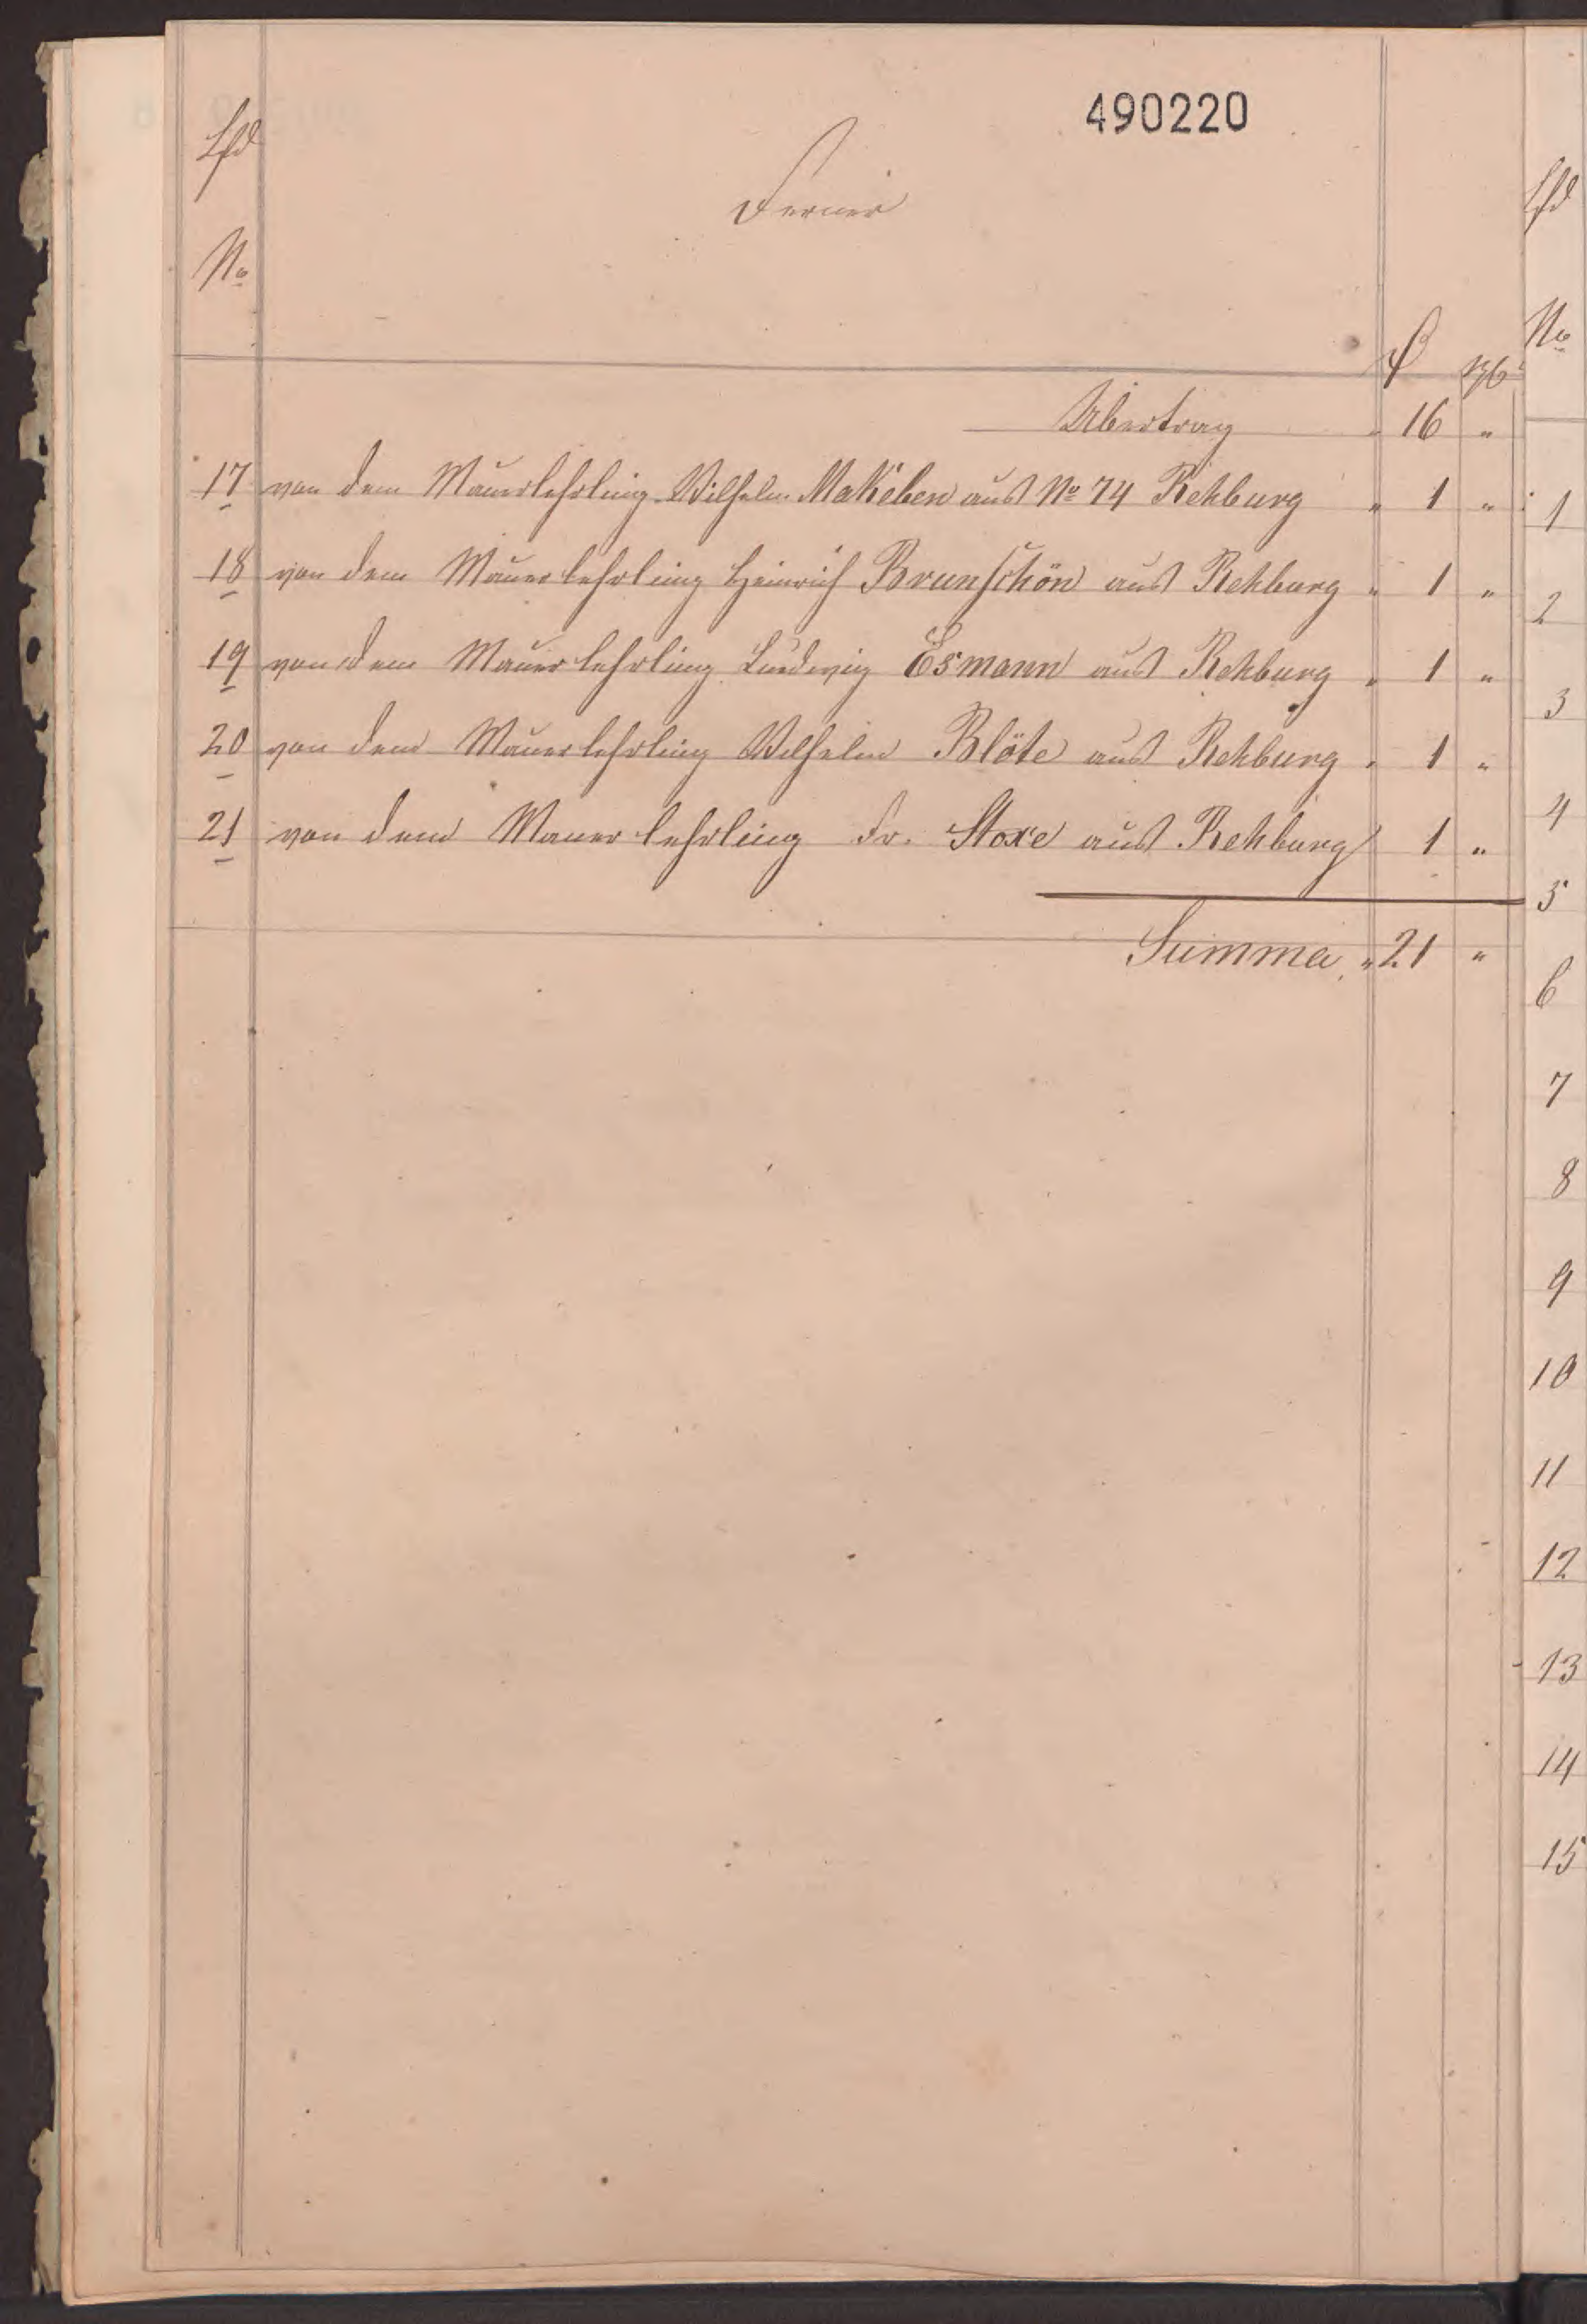 490220
Lfd
No
Ferner
Übertrag " 16 "
17 von dem Maurerlehrling Wilhelm Makeben aus No 74 Rehburg " 1 "
18 von dem Maurerlehrling Heinrich Brunschön aus Rehburg " 1 "
19 von dem Maurerlehrling Ludwig Esmann aus Rehburg " 1 "
20 von dem Maurerlehrling Wilhelm Blöte aus Rehburg " 1 "
21 von dem Maurerlehrling Fr. Stoxe aus Rehburg 1 "
Summa " 21 "
Lfd
No
1
2
3
4
5
6
7
8
9
10
11
12
13
14
15